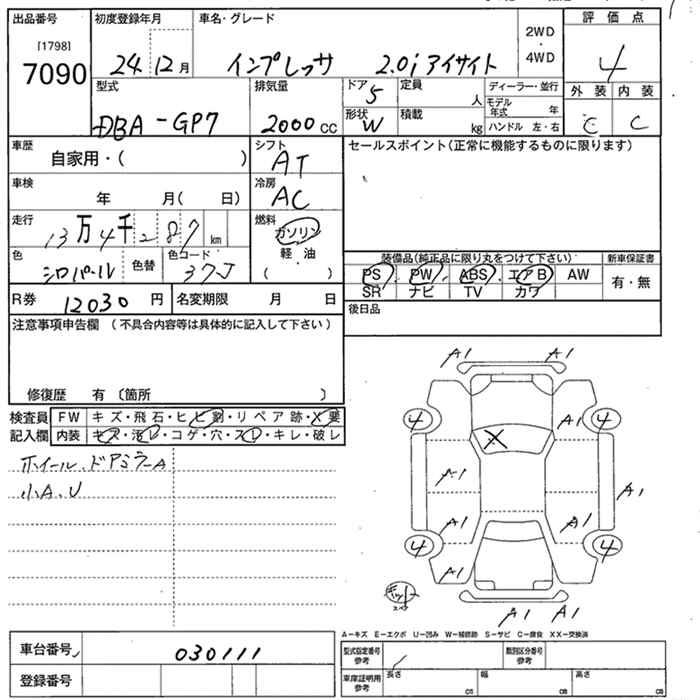 出品番号
[1798]
7090
初度登録年月
24 12月
車名・グレード
インプレッサ 2.0i アイサイト
2WD
・
4WD
評価点
4
外装 内装
C C
型式
DBA-GP7
排気量
2000cc
ドア
5
形状
W
定員
人
積載
kg
ディーラー・並行
モデル年式 年
ハンドル 左・右
車歴
自家用・( )
シフト
AT
セールスポイント(正常に機能するものに限ります)
車検
年 月( 日)
冷房
AC
走行
13万4千287km
燃料
ガソリン
軽・油
( )
色
シロパール
色替
色コード
37J
装備品(純正品に限り丸をつけて下さい)
PS PW ABS エアB AW
SR ナビ TV カワ
新車保証書
有・無
R券
12030円
名変期限 月 日
後日品
注意事項申告欄 (不具合内容等は具体的に記入して下さい)
修復歴 有 〔箇所 〕
検査員記入欄
FW キズ・飛石・ヒビ割・リペア跡・X要
内装 キズ・汚レ・コゲ・穴・スレ・キレ・破レ
ホイール、ドアミラーA
小A、U
A1 A1
4 A1 4
X
A1 A1
A1 A1
4 4
A1
キット
スペア
A1 A1
A−キズ E−エクボ U−凹み W−補修跡 S−サビ C−腐食 XX−交換済
車台番号
030111
登録番号
型式指定番号
参考
類別区分番号
参考
車庫証明用
参考
長さ cm
幅 cm
高さ cm